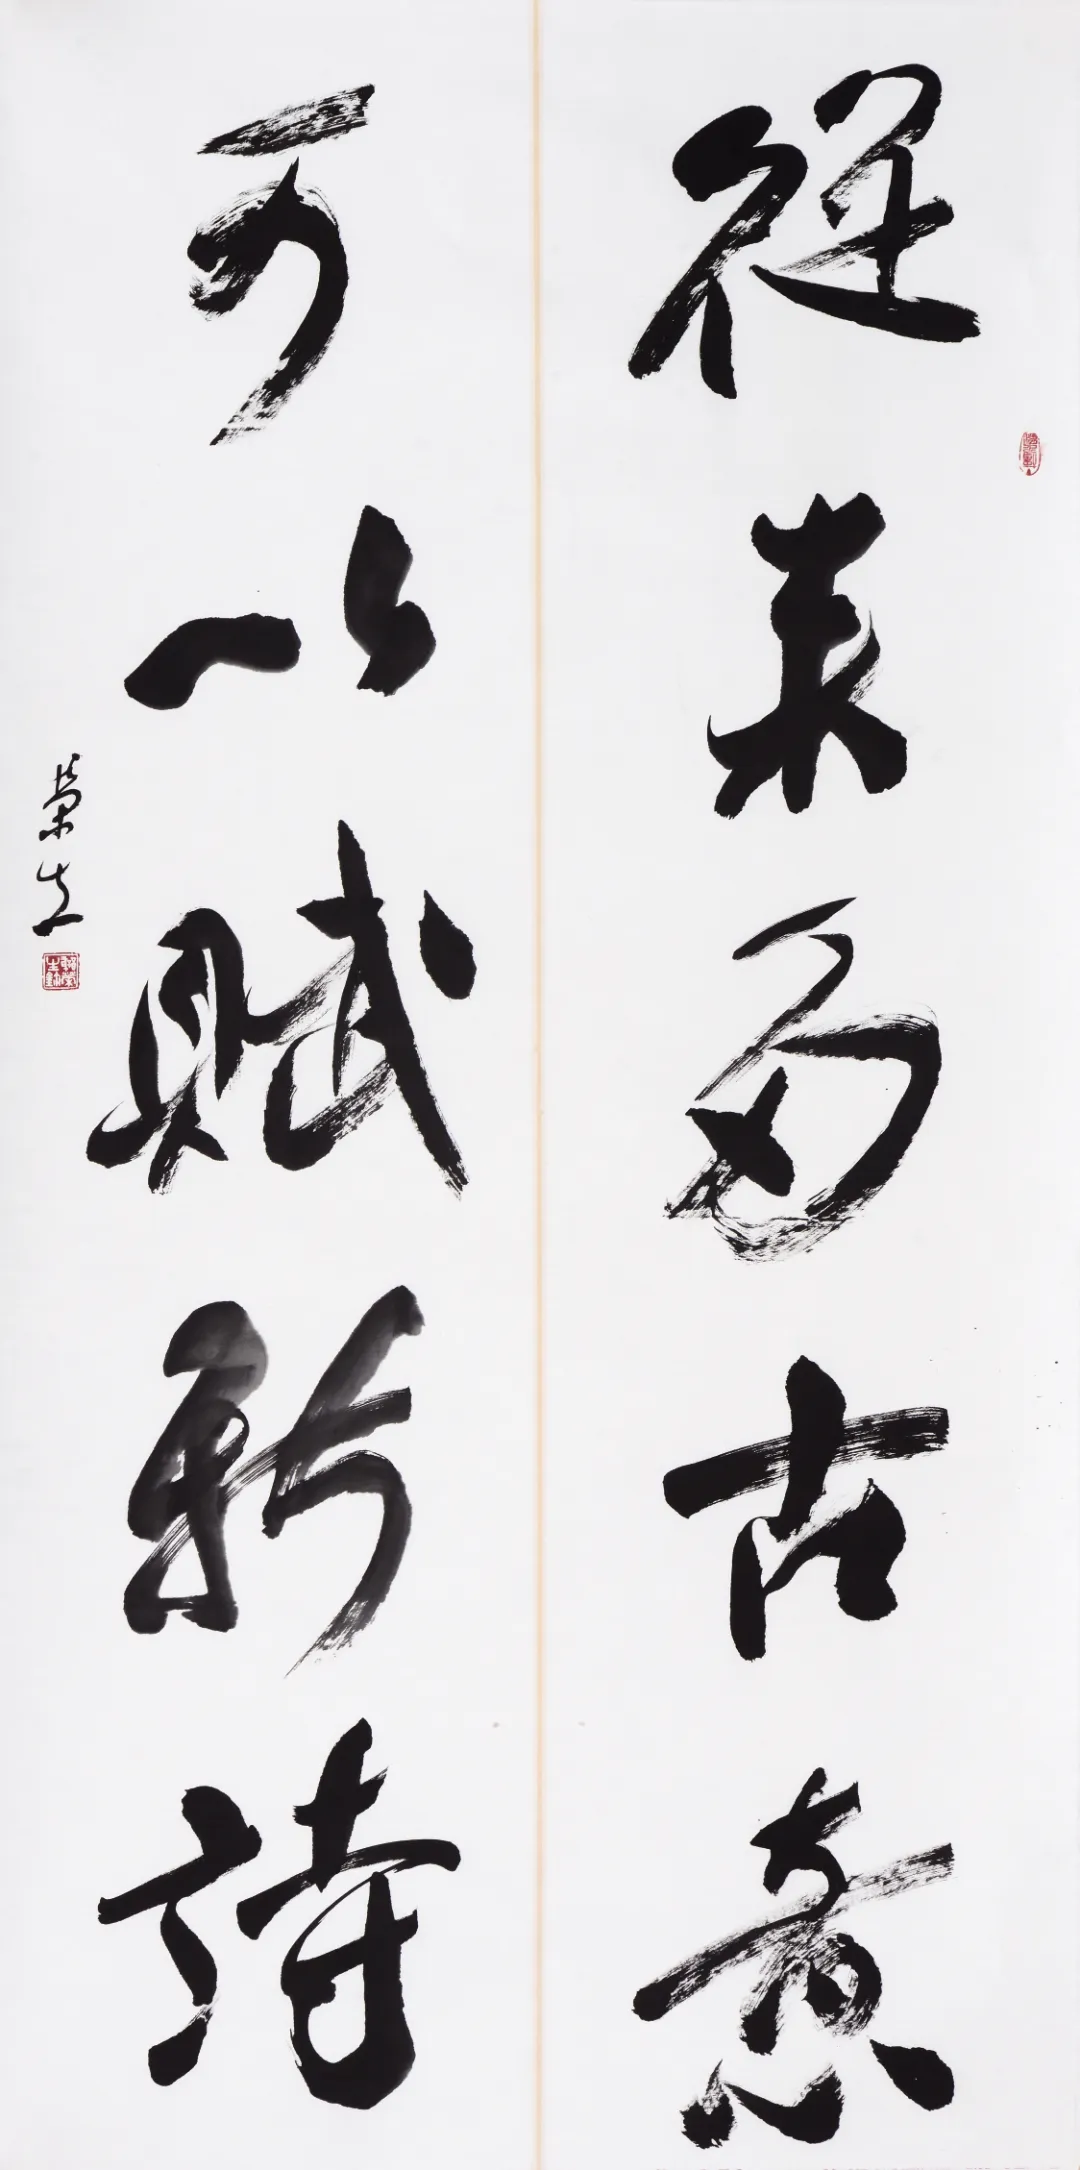 從來多古意
可以賦新詩
榮生